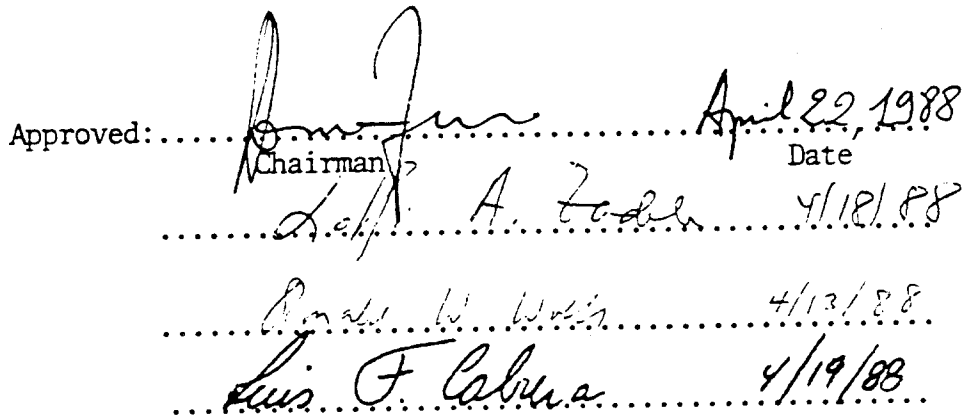 Approved: April 22, 1988
Chairman Date
A. Zadeh 4/18/88
W 4/13/88
Luis F. Cabrera 4/19/88